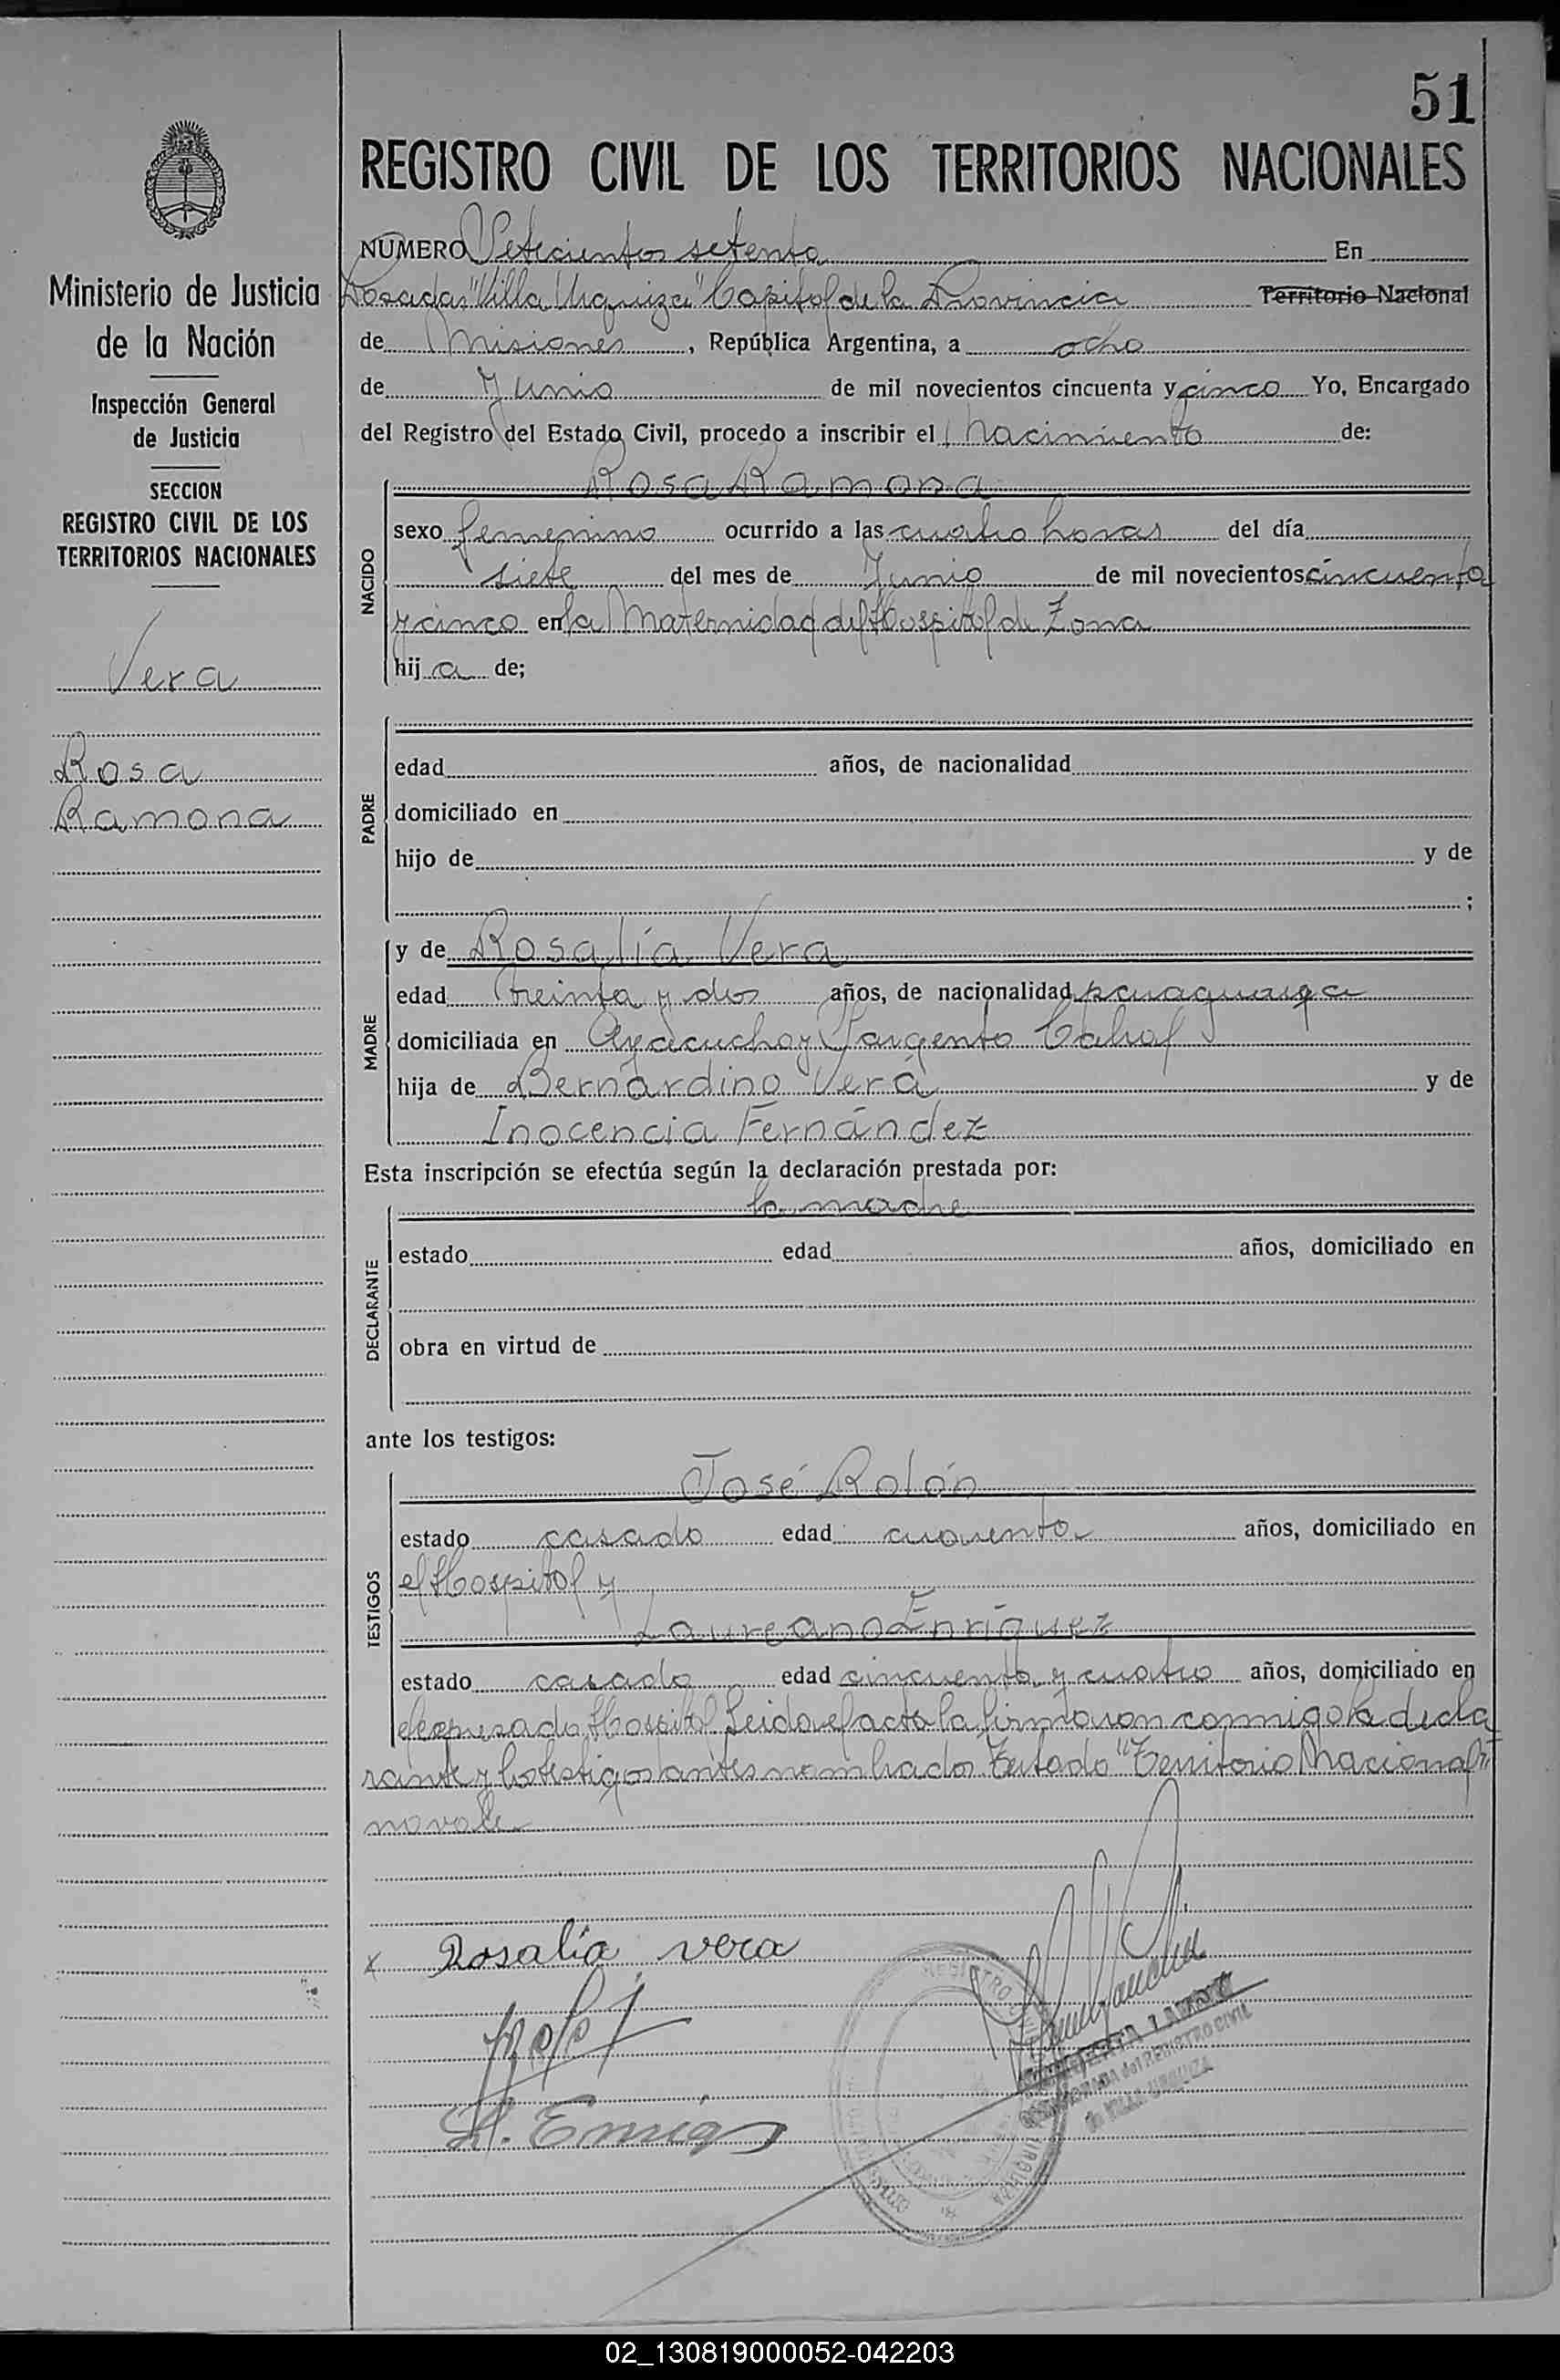 51
REGISTRO CIVIL DE LOS TERRITORIOS NACIONALES
Ministerio de Justicia
de la Nación
Inspección General
de Justicia
SECCION
REGISTRO CIVIL DE LOS
TERRITORIOS NACIONALES
Vera
Rosa
Ramona
NUMERO Setecientos setenta En
Posadas "Villa Urquiza" Capital de la Provincia Territorio Nacional
de Misiones, República Argentina, a ocho
de Junio de mil novecientos cincuenta y cinco Yo, Encargado
del Registro del Estado Civil, procedo a inscribir el Nacimiento de:
NACIDO
Rosa Ramona
sexo femenino ocurrido a las cuatro horas del día
siete del mes de Junio de mil novecientos cincuenta
y cinco en la Maternidad del Hospital de Zona
hija de;
PADRE
edad años, de nacionalidad
domiciliado en
hijo de y de
;
MADRE
y de Rosalía Vera
edad treinta y dos años, de nacionalidad paraguaya
domiciliada en Ayacucho y Sargento Cabral
hija de Bernardino Vera y de
Inocencia Fernández
Esta inscripción se efectúa según la declaración prestada por:
DECLARANTE
la madre
estado edad años, domiciliado en
obra en virtud de
ante los testigos:
TESTIGOS
José Rolón
estado casado edad cuarenta años, domiciliado en
el Hospital y
Laureano Enríquez
estado casado edad cincuenta y cuatro años, domiciliado en
el expresado Hospital Leida el acta la firmaron conmigo la decla
rante y los testigos antes nombrados Testado "Territorio Nacional"
no vale
x Rosalía vera
L. Enriq
REGISTRO
URQUIZA
del REGISTRO CIVIL
de VILLA URQUIZA
02_130819000052-042203